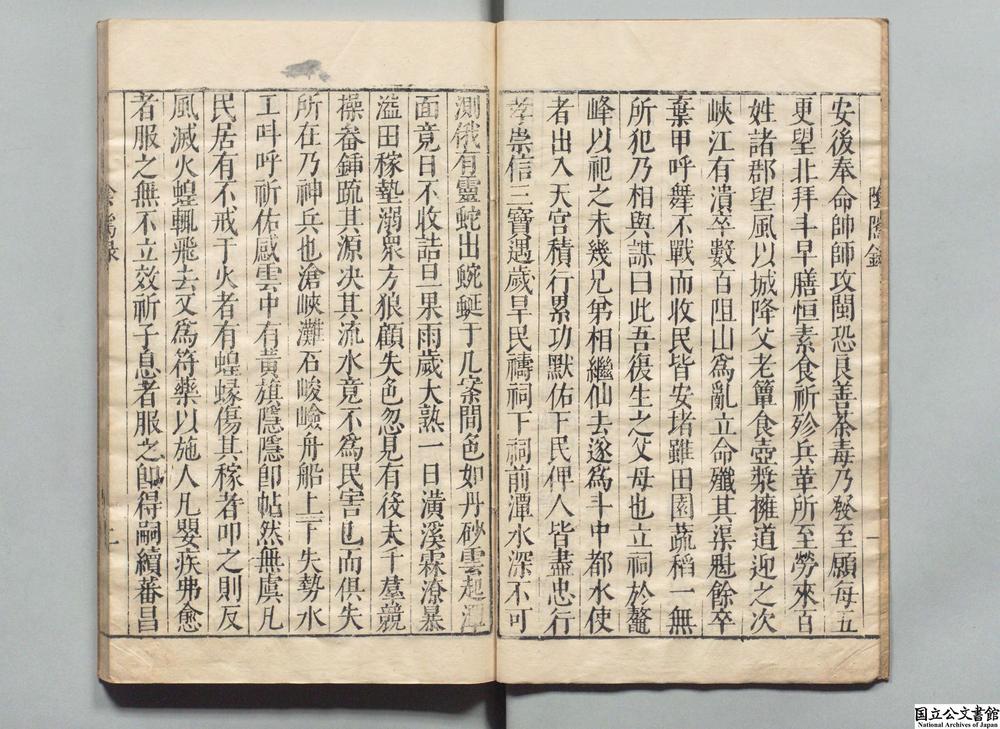 陰隲錄
安後奉命帥師攻閩恐良善荼毒乃發至願每五
更望北拜斗早膳恒素食祈殄兵革所至勞來百
姓諸郡望風以城降父老簞食壺漿擁道迎之次
峽江有潰卒數百阻山爲亂立命殲其渠魁餘卒
棄甲呼舞不戰而收民皆安堵雖田園蔬稻一無
所犯乃相與謀曰此吾復生之父母也立祠於鼇
峰以祀之未幾兄弟相繼仙去遂爲斗中都水使
者出入天宮積行累功默佑下民俾人皆盡忠行
孝崇信三寶遇歲旱民禱祠下祠前潭水深不可
測俄有靈蛇出蜿蜒于几案間色如丹砂雲起潭
面竟日不收詰旦果雨歲大熟一日潢溪霖潦暴
溢田稼墊溺衆方狼顧失色忽見有後夫千羣競
操畚鍤疏其源決其流水竟不爲民害已而俱失
所在乃神兵也滄峽灘石峻嶮舟船上下失勢水
工呌呼祈佑感雲中有黃旗隱隱即帖然無虞凡
民居有不戒于火者有蝗蝝傷其稼者叩之則反
風滅火蝗輒飛去又爲符藥以施人凡嬰疾弗愈
者服之無不立效祈子息者服之即得嗣續蕃昌
国立公文書館
National Archives of Japan